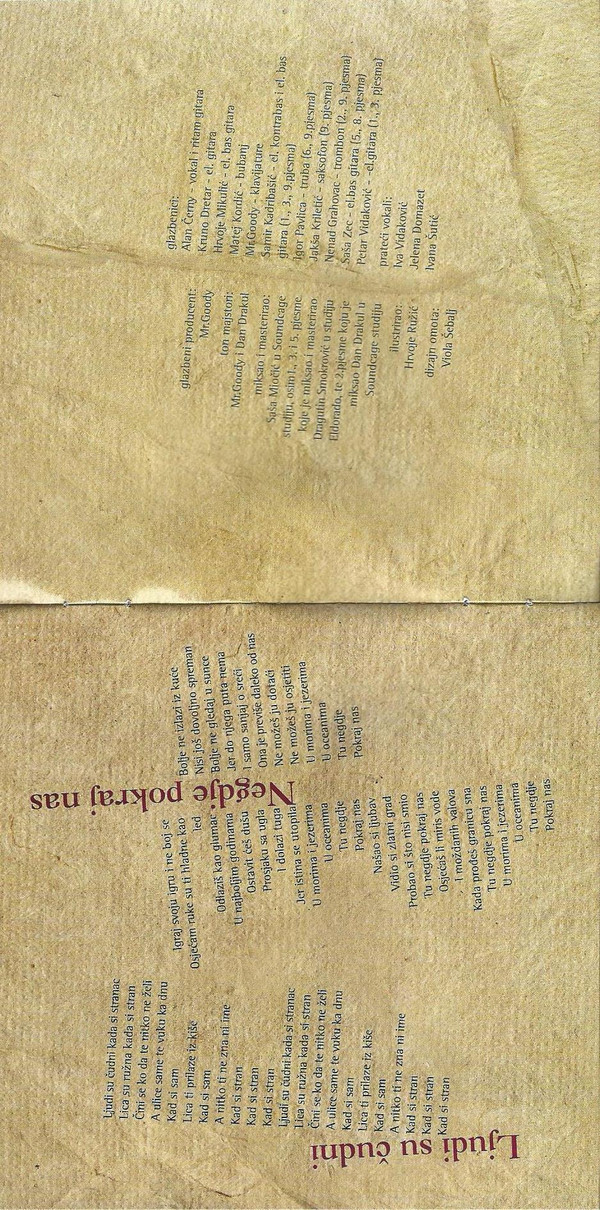 Ljudi su čudni
Ljudi su čudni kada si stranac
Lica su ružna kada si stran
Čini se ko da te nitko ne želi
A ulice same te vuku ka dnu
Kad si sam
Lica ti prilaze iz kiše
Kad si sam
A nitko ti ne zna ni ime
Kad si stran
Kad si stran
Kad si stran
Ljudi su čudni kada si stranac
Lica su ružna kada si stran
Čini se ko da te nitko ne želi
A ulice same te vuku ka dnu
Kad si sam
Lica ti prilaze iz kiše
Kad si sam
A nitko ti ne zna ni ime
Kad si stran
Kad si stran
Kad si stran
Negdje pokraj nas
Igraj svoju igru i ne boj se
Osjećam ruke su ti hladne kao
led
Odlaziš kao glumac
U najboljim godinama
Ostavit ćeš dušu
Prosjaku sa ugla
I dolazi tuga
Jer istina se utopila
U morima i jezerima
U oceanima
Tu negdje
Pokraj nas
Našao si ljubav
Vidio si zlatni grad
Probao si što nisi smio
Tu negdje pokraj nas
Osjećaš li miris vode
I moždanih valova
Kada prođeš granicu sna
Tu negdje pokraj nas
U morima i jezerima
U oceanima
Tu negdje
Pokraj nas
Bolje ne izlazi iz kuće
Nisi još dovoljno spreman
Bolje ne gledaj u sunce
Jer do njega puta nema
I samo sanjaj o sreći
Ona je previše daleko od nas
Ne možeš ju dotaći
Ne možeš ju osjetiti
U morima i jezerima
U oceanima
Tu negdje
Pokraj nas
glazbeni producent:
Mr.Goody
ton majstori:
Mr.Goody i Dan Drakul
miksao i masterirao:
Saša Miočić u Soundcage
studiju, osim 1., 3. i 5. pjesme
koje je miksao i masterirao
Dragutin Smokrović u studiju
Eldorado, te 2.pjesme koju je
miksao Dan Drakul u
Soundcage studiju
ilustrirao:
Hrvoje Ružić
dizajn omota:
Viola Šebalj
glazbenici:
Alan Černy - vokal i ritam gitara
Kruno Dretar - el. gitara
Hrvoje Mikulić - el. bas gitara
Matej Kordić - bubanj
Mr.Goody - klavijature
Samir Kadribašić - el. kontrabas i el. bas
gitara (1., 3., 9.pjesma)
Igor Pavlica - truba (6., 9.pjesma)
Jakša Kriletić - saksofon (9. pjesma)
Nenad Grahovac - trombon (2., 9. pjesma)
Saša Zec - el.bas gitara (5., 8. pjesma)
Petar Vidaković - - el.gitara (1., 3. pjesma)
prateći vokali:
Iva Vidaković
Jelena Domazet
Ivana Šutić